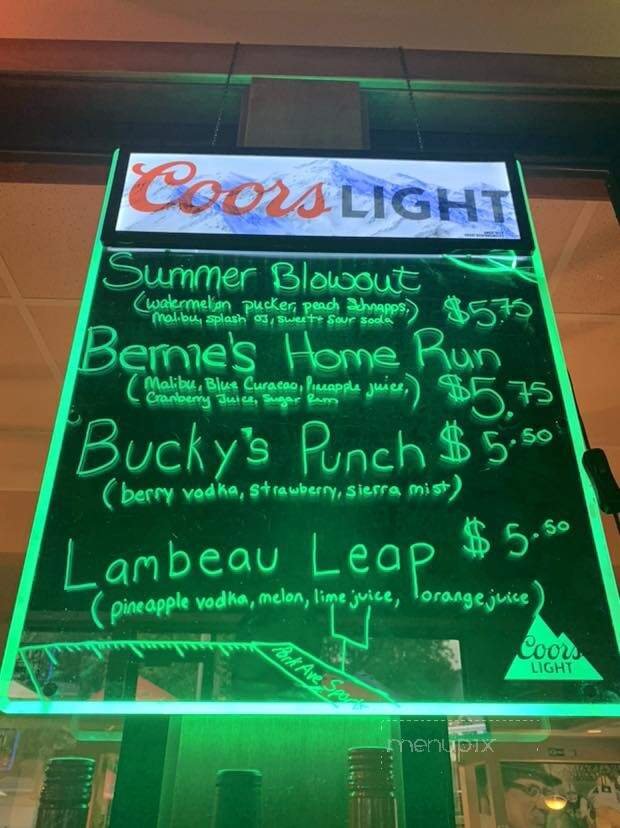 Coors LIGHT
Summer Blowout
(watermelon pucker, peach Schnapps,) $5.75
Malibu, splash OJ, sweet + sour soda
Bernie's Home Run
(Malibu, Blue Curacao, Pineapple juice,) $5.75
Cranberry Juice, Sugar Rim
Bucky's Punch $5.50
(berry vodka, strawberry, sierra mist)
Lambeau Leap $5.50
(pineapple vodka, melon, lime juice, orange juice)
Park Ave Sports
Coors
LIGHT
menupix